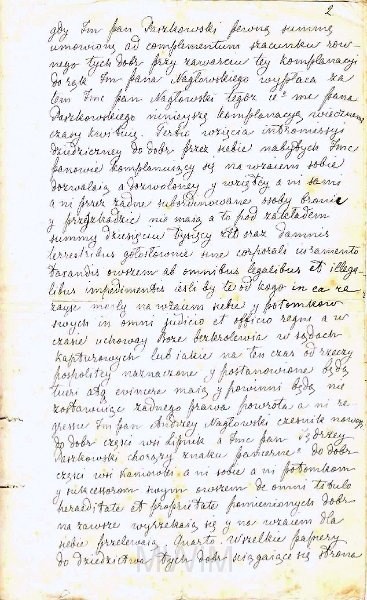 2
gdy Jm pan Paszkowski pewną summę
umowioną ad complementum szacunku row-
nego tych dobr przy zawarciu tey komplanacyi
do rąk Jm pana Nagłowskiego wypłaca za
tem Jmc pan Nagłowski tegoż me pana
Paszkowskiego ninieyszą komplanacyą wiecznemi
czasy kwituie. Tertio wzięcia intromissyi
dziedziczney do dobr przez siebie nabytych Jmc
panowie komplanuiący się na wzaiem sobie
dozwalaią a dozwoloney y wziętey ani sami
ani przez żadne subordynowane osoby bronić
y przeszkadzać nie maią a to pod zakładem
summy dziesięciu tysięcy złł oraz damnis
terrestribus gołosłownie sine corporali iuramento
taxandis owszem ab omnibus legalibus et illega-
libus impedimentis iesli by te od kogo in ca re
zayść mogły na wzaiem siebie y potomkow
swych in omni judicio et officio regni a w
czasie uchoway Boże bezkrolewia w sądach
kapturowych lub iakie na ten czas od rzeczy
pospolitey naznaczone y postanowione będą
tueri atq evincere maią y powinni będą nie
zostawuiąc żadnego prawa powrotu ani re
gressu Jm pan Andrzey Nagłowski czesnik
do dobr części wsi Lipnik a Jmc pan
Paszkowski chorąży znaku pancerne° do dobr
części wsi Kamorów ani sobie ani potomkom
y sukcessorom swym owszem de omni titulo
haereditate et proprietate pomienionych dobr
na zawsze wyrzekaią się y na wzaiem dla
siebie przelewaią. Quarto. Wszelkie papiery
do dziedzictwa tych dobr sciągaiące się strona
MiM